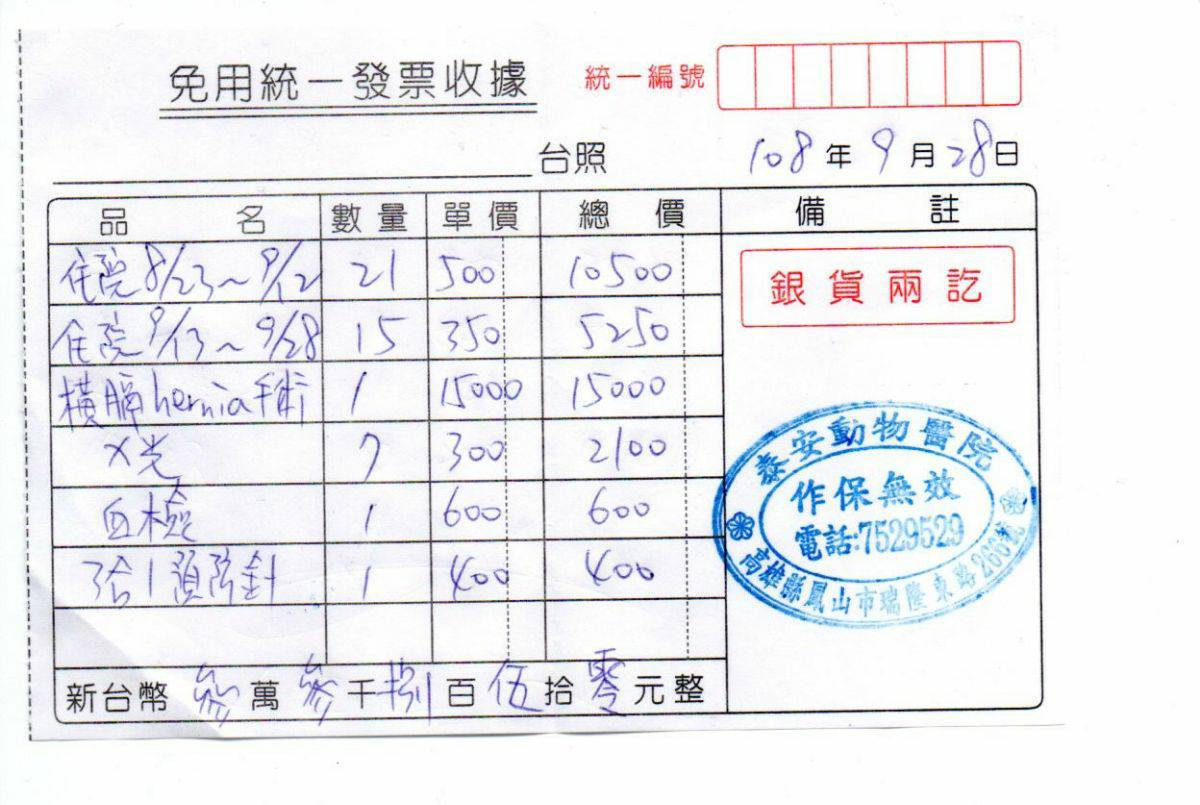 免用統一發票收據
統一編號
台照
108年9月28日
品名 數量 單價 總價 備註
住院8/23~9/12 21 500 10500
銀貨兩訖
住院9/13~9/28 15 350 5250
橫膈hernia手術 1 15000 15000
X光 7 300 2100
血檢 1 600 600
3合1預防針 1 400 400
泰安動物醫院
作保無效
電話:7529529
高雄縣鳳山市瑞隆東路266號
新台幣參萬參千捌百伍拾零元整